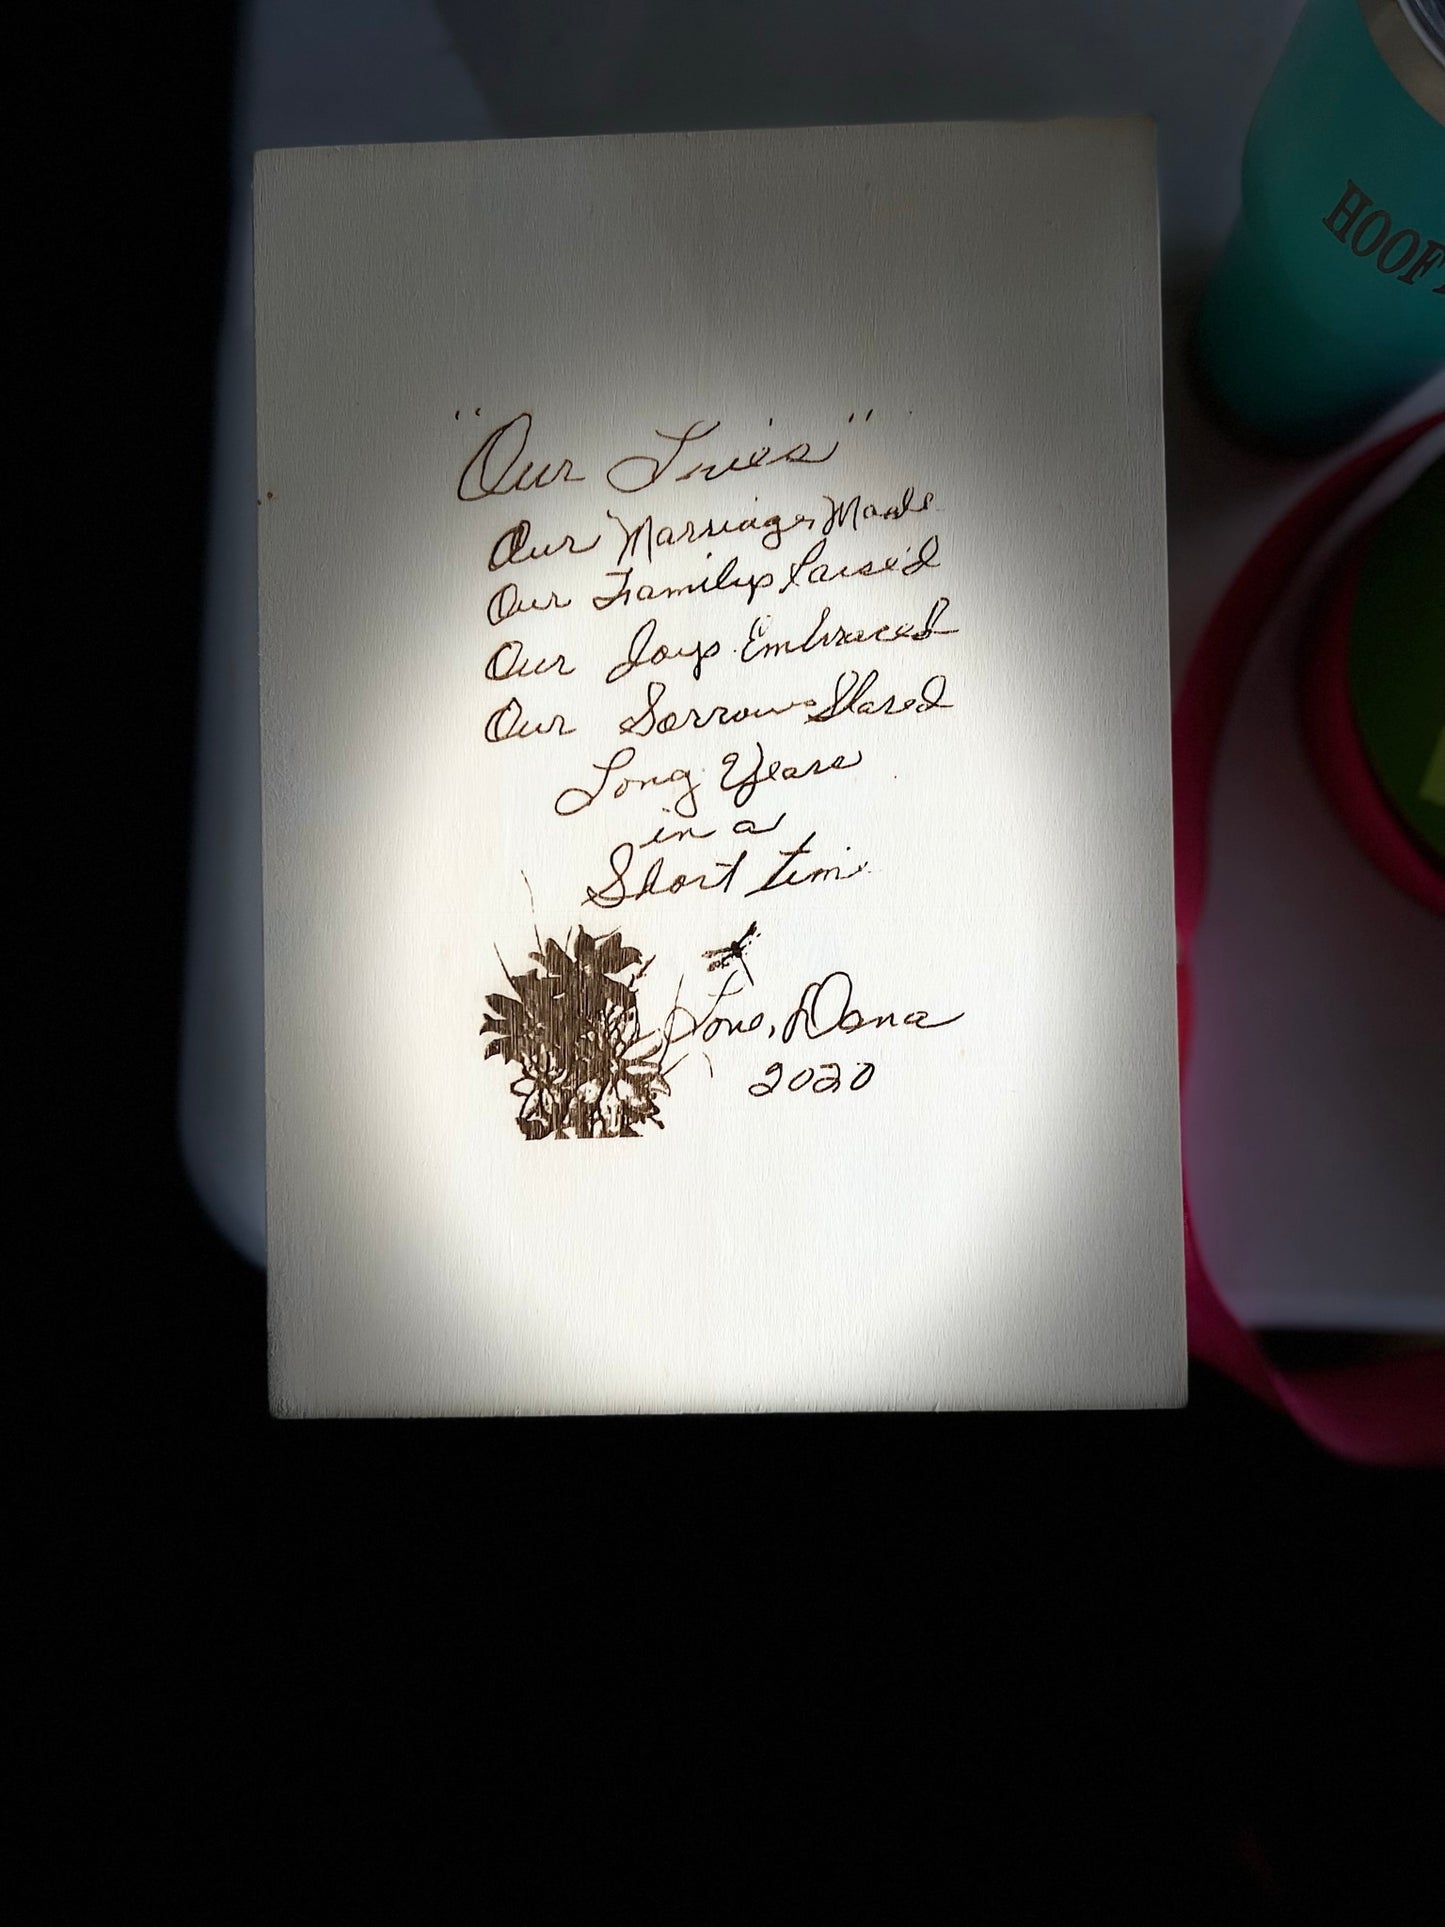 "Our Lives"
Our Marriage, Made
Our Family, Raised
Our Joys Embraced
Our Sorrows Shared
Long Years
in a
Short time
Love, Dana
2020
HOOF